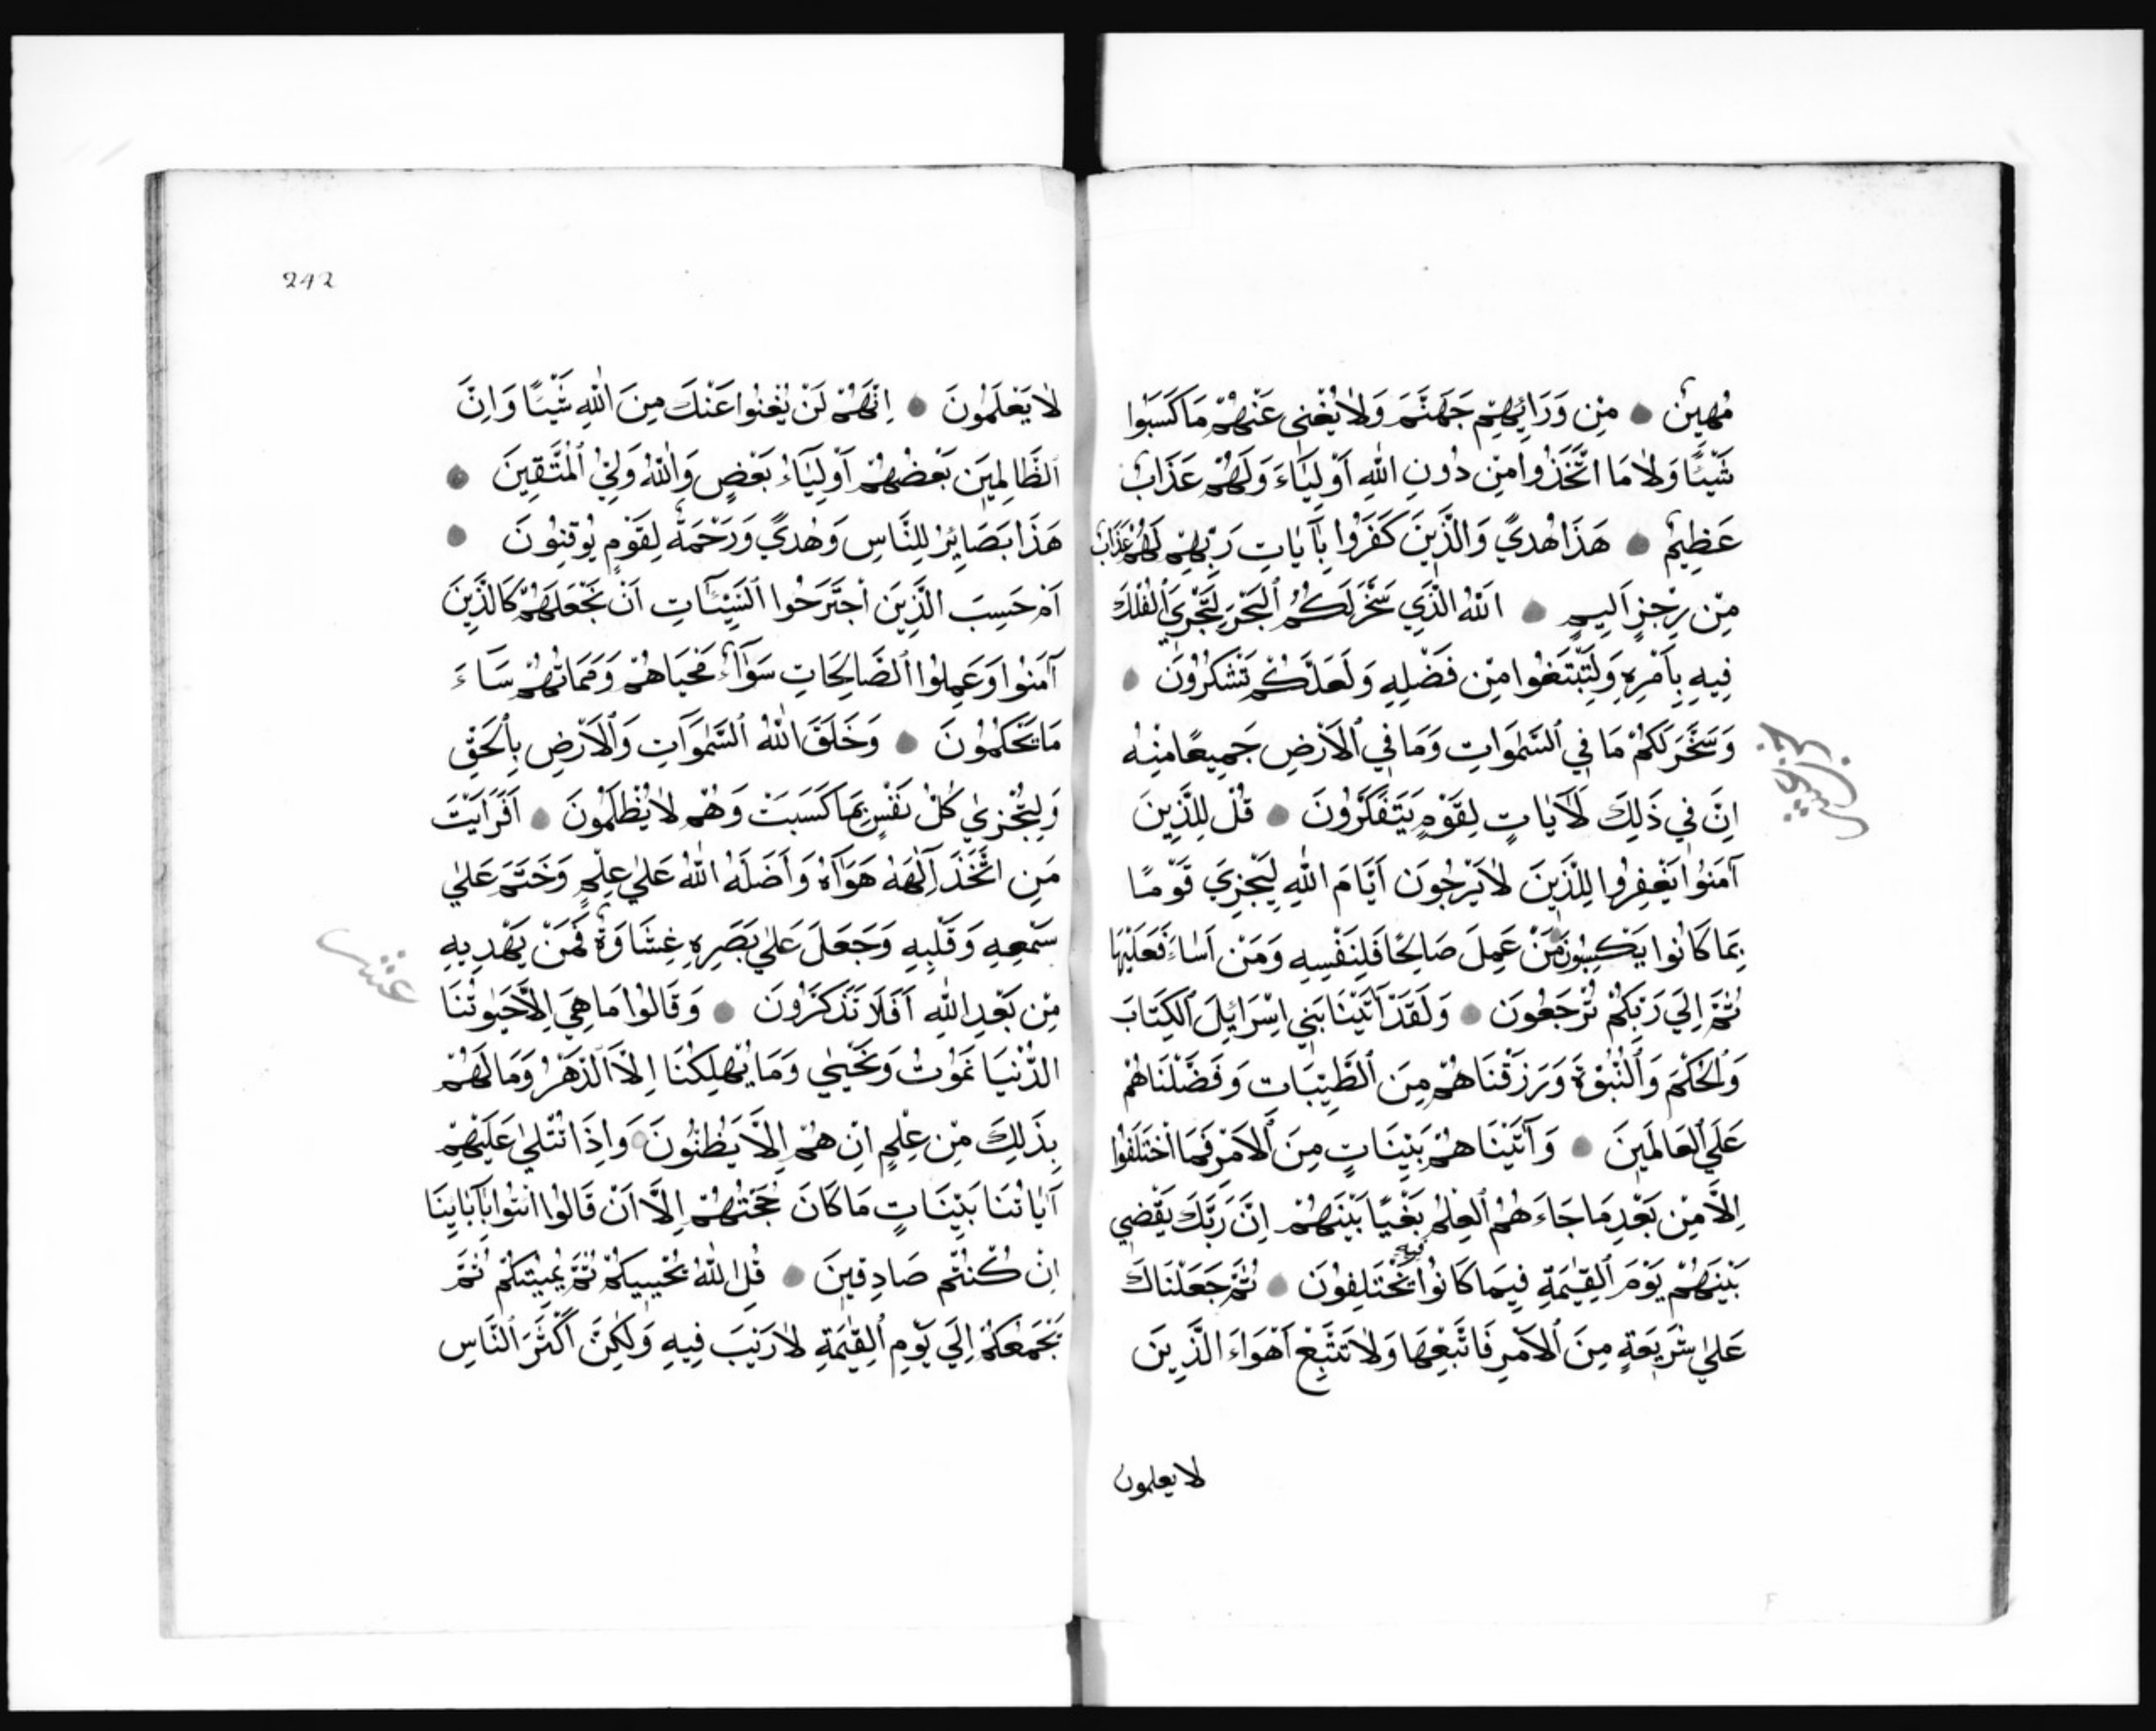 مُهِينٌ ● مِنْ وَرَائِهِمْ جَهَنَّمَ وَلَا يُغْنِي عَنْهُمْ مَا كَسَبُوا
شَيْئًا وَلَا مَا اتَّخَذُوا مِنْ دُونِ اللّٰهِ اَوْلِيَاءَ وَلَهُمْ عَذَابٌ
عَظِيمٌ ● هَذَا هُدىً وَالَّذِينَ كَفَرُوا بِآيَاتِ رَبِّهِمْ لَهُمْ عَذَابٌ
مِنْ رِجْزٍ اَلِيمٍ ● اَللّٰهُ الَّذِي سَخَّرَ لَكُمُ الْبَحْرَ لِتَجْرِيَ الْفُلْكُ
فِيهِ بِاَمْرِهِ وَلِتَبْتَغُوا مِنْ فَضْلِهِ وَلَعَلَّكُمْ تَشْكُرُونَ ●
وَسَخَّرَ لَكُمْ مَا فِي السَّمٰوَاتِ وَمَا فِي الْاَرْضِ جَمِيعًا مِنْهُ
اِنَّ فِي ذَلِكَ لَآيَاتٍ لِقَوْمٍ يَتَفَكَّرُونَ ● قُلْ لِلَّذِينَ
آمَنُوا يَغْفِرُوا لِلَّذِينَ لَا يَرْجُونَ اَيَّامَ اللّٰهِ لِيَجْزِيَ قَوْمًا
بِمَا كَانُوا يَكْسِبُونَ مَنْ عَمِلَ صَالِحًا فَلِنَفْسِهِ وَمَنْ اَسَاءَ فَعَلَيْهَا
ثُمَّ اِلَي رَبِّكُمْ تُرْجَعُونَ ● وَلَقَدْ آتَيْنَا بَنِي اِسْرَائِلَ الْكِتَابَ
وَالْحُكْمَ وَالنُّبُوَّةَ وَرَزَقْنَاهُمْ مِنَ الطَّيِّبَاتِ وَفَضَّلْنَاهُمْ
عَلَي الْعَالَمِينَ ● وَآتَيْنَاهُمْ بَيِّنَاتٍ مِنَ الْاَمْرِ فَمَا اخْتَلَفُوا
اِلَّا مِنْ بَعْدِ مَا جَاءَهُمُ الْعِلْمُ بَغْيًا بَيْنَهُمْ اِنَّ رَبَّكَ يَقْضِي
بَيْنَهُمْ يَوْمَ الْقِيٰمَةِ فِيمَا كَانُوا فِيهِ يَخْتَلِفُونَ ● ثُمَّ جَعَلْنَاكَ
عَلٰي شَرِيعَةٍ مِنَ الْاَمْرِ فَاتَّبِعْهَا وَلَا تَتَّبِعْ اَهْوَاءَ الَّذِينَ
لا يعلمون
242
لَا يَعْلَمُونَ ● اِنَّهُمْ لَنْ يُغْنُوا عَنْكَ مِنَ اللّٰهِ شَيْئًا وَاِنَّ
الظَّالِمِينَ بَعْضُهُمْ اَوْلِيَاءُ بَعْضٍ وَاللّٰهُ وَلِيُّ الْمُتَّقِينَ ●
هَذَا بَصَائِرُ لِلنَّاسِ وَهُدىً وَرَحْمَةٌ لِقَوْمٍ يُوقِنُونَ ●
اَمْ حَسِبَ الَّذِينَ اجْتَرَحُوا السَّيِّئَاتِ اَنْ نَجْعَلَهُمْ كَالَّذِينَ
آمَنُوا وَعَمِلُوا الصَّالِحَاتِ سَوَآءً مَحْيَاهُمْ وَمَمَاتُهُمْ سَاءَ
مَا يَحْكُمُونَ ● وَخَلَقَ اللّٰهُ السَّمٰوَاتِ وَالْاَرْضَ بِالْحَقِّ
وَلِتُجْزٰي كُلُّ نَفْسٍ بِمَا كَسَبَتْ وَهُمْ لَا يُظْلَمُونَ ● اَفَرَاَيْتَ
مَنِ اتَّخَذَ اِلٰهَهُ هَوَاهُ وَاَضَلَّهُ اللّٰهُ عَلٰي عِلْمٍ وَخَتَمَ عَلٰي
سَمْعِهِ وَقَلْبِهِ وَجَعَلَ عَلٰي بَصَرِهِ غِشَاوَةً فَمَنْ يَهْدِيهِ
عشر
مِنْ بَعْدِ اللّٰهِ اَفَلَا تَذَكَّرُونَ ● وَقَالُوا مَا هِيَ اِلَّا حَيٰوتُنَا
الدُّنْيَا نَمُوتُ وَنَحْيٰي وَمَا يُهْلِكُنَا اِلَّا الدَّهْرُ وَمَا لَهُمْ
بِذَلِكَ مِنْ عِلْمٍ اِنْ هُمْ اِلَّا يَظُنُّونَ ● وَاِذَا تُتْلٰي عَلَيْهِمْ
آيَاتُنَا بَيِّنَاتٍ مَا كَانَ حُجَّتَهُمْ اِلَّا اَنْ قَالُوا ائْتُوا بِآبَائِنَا
اِنْ كُنْتُمْ صَادِقِينَ ● قُلِ اللّٰهُ يُحْيِيكُمْ ثُمَّ يُمِيتُكُمْ ثُمَّ
يَجْمَعُكُمْ اِلَي يَوْمِ الْقِيٰمَةِ لَا رَيْبَ فِيهِ وَلٰكِنَّ اَكْثَرَ النَّاسِ